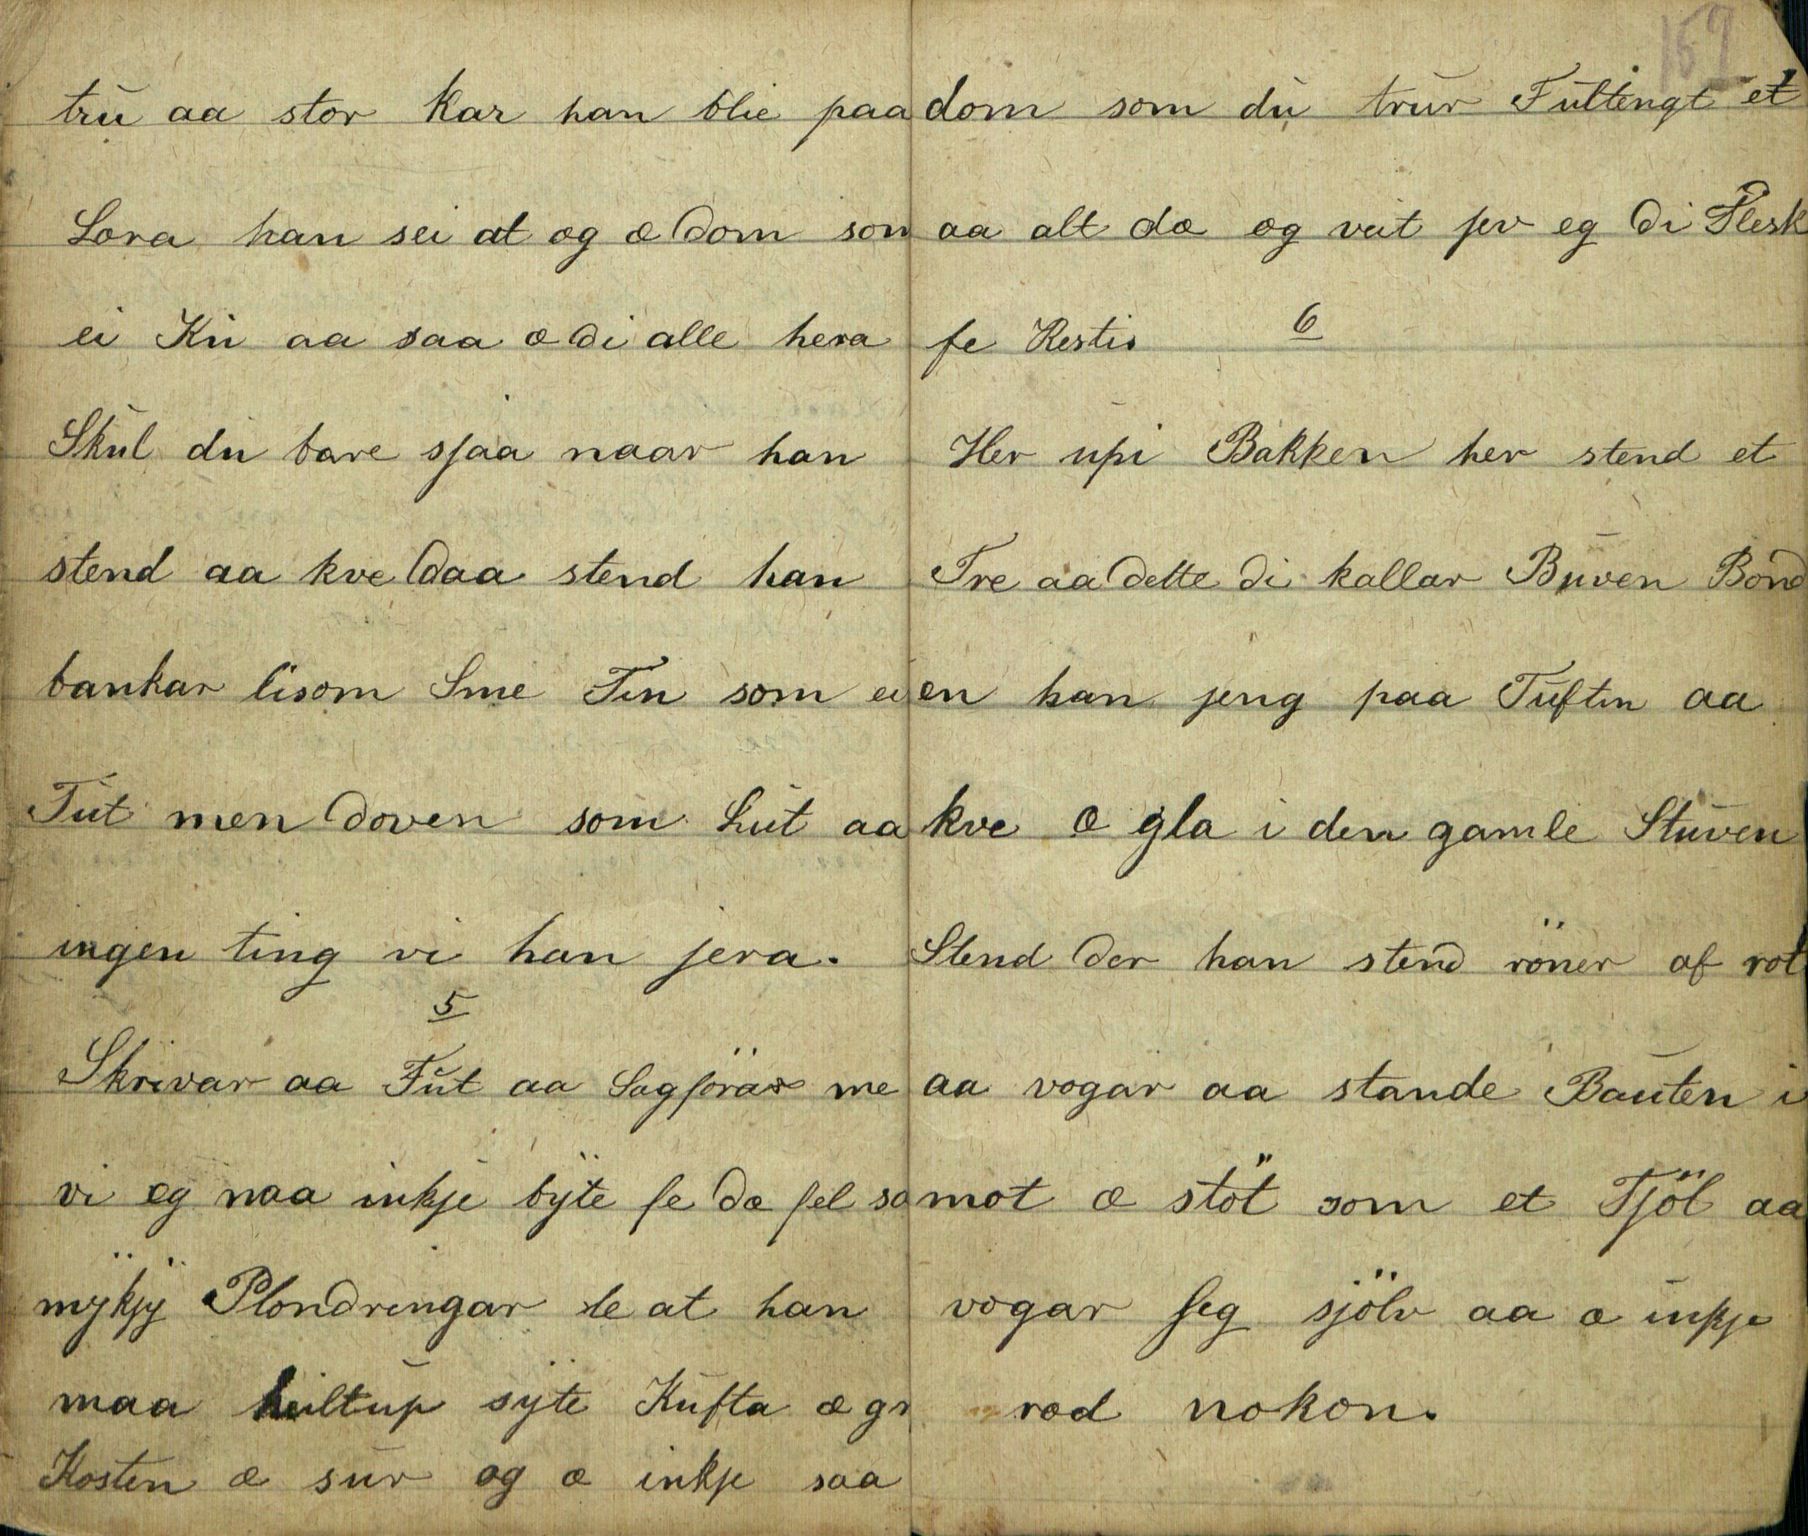 trú aa stor kar han blie paa
Lora han sei at og æ dom som
ei Kú aa saa æ di alle hera
Skúl dú bare sjaa naar han
stend aa kve daa stend han
bankar lisom Sme Tin som ei
Tút men doven som Lút aa
ingen ting vi han jera.
5
Skrivar aa Fút aa Sagförar me
vi eg naa inkje býte fe dæ fel so
mÿkjÿ Plondringar le at han
maa heiltup sÿte Kúfta æ gr
Kosten æ súr og æ inkje saa
157
dom som dú trúr Fúltengt et
aa alt dæ eg veit jev eg di Flesk
fe Restis
6
Her úpi Bakken her stend et
Tre aa dette di kallar Búven Bond
en han jeng paa Túftin aa
kve æ gla i den gamle Stúven
Stend der han stend röner af rot
aa vogar aa stande Baúten i
mot æ stöt som et Tjöl aa
vogar seg sjölv aa æ inkje
ræd nokon.